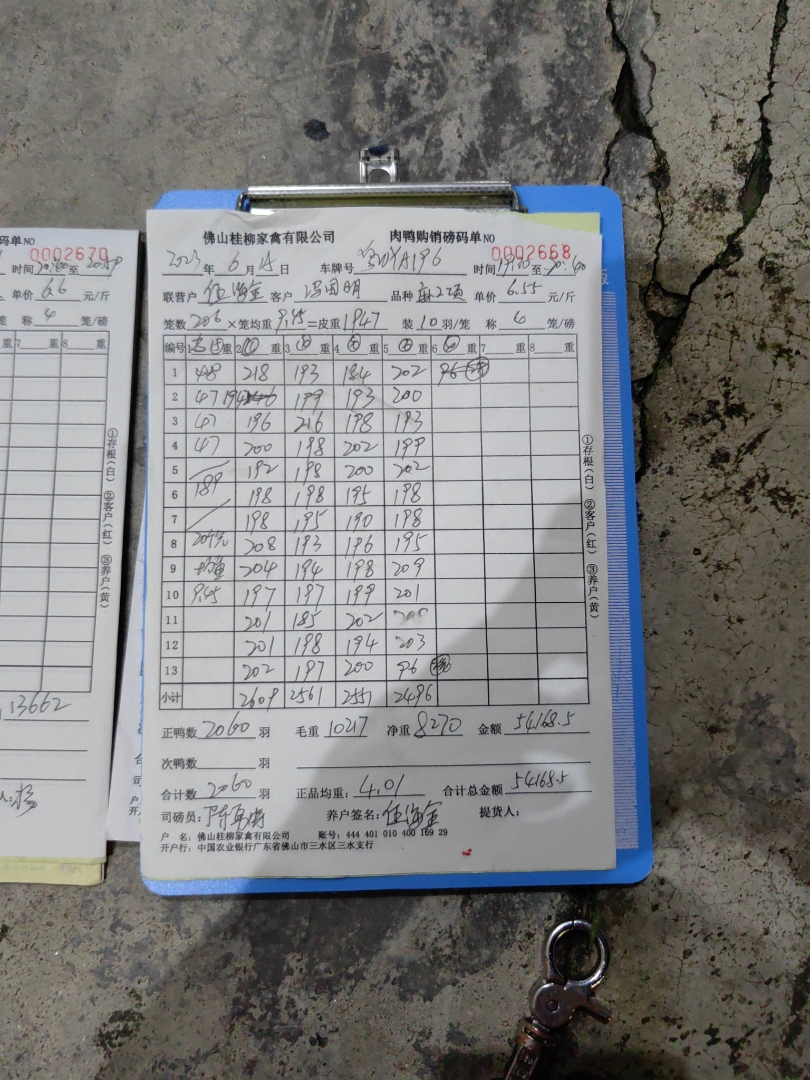 佛山桂柳家禽有限公司 肉鸭购销磅码单NO 0002668
2023年6月14日 车牌号 A196 时间19:30至20:40
联营户 伍海金 客户 冯国明 品种 麻2项 单价 6.55 元/斤
笼数206×笼均重9.45=皮重1947 装10羽/笼 称6笼/磅
编号 重 2 重 3 重 4 重 5 重 6 重 7 重 8 重
1 48 218 193 184 202 96
2 47 194 199 193 200
3 47 196 216 198 193
4 47 200 198 202 199
5 192 198 200 202
6 189 198 198 195 198
7 198 195 190 198
8 20笼 208 193 196 195
9 均重 204 194 198 209
10 9.45 197 197 199 201
11 201 185 202
12 201 198 194 203
13 202 197 200 96
小计 2609 2561 2551 2496
正鸭数 2060 羽 毛重 10217 净重 8270 金额 54168.5
次鸭数 羽
合计数 2060 羽 正品均重: 4.01 合计总金额 54168.5
司磅员: 养户签名: 伍海金 提货人:
户 名: 佛山桂柳家禽有限公司 账号: 444 401 010 400 169 29
开户行: 中国农业银行广东省佛山市三水区三水支行
①存根(白) ②客户(红) ③养户(黄)
码单NO 0002670
时间 至
单价 6.6 元/斤
笼 称 4 笼/磅
重 7 重 8 重
①存根(白) ②客户(红) ③养户(黄)
13662